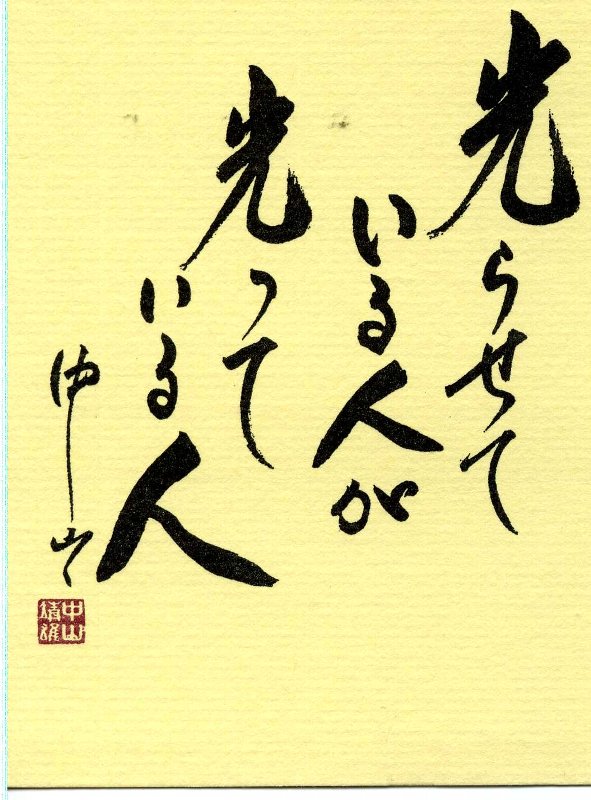 光らせて
いる人が
光って
いる人
中山
靖雄